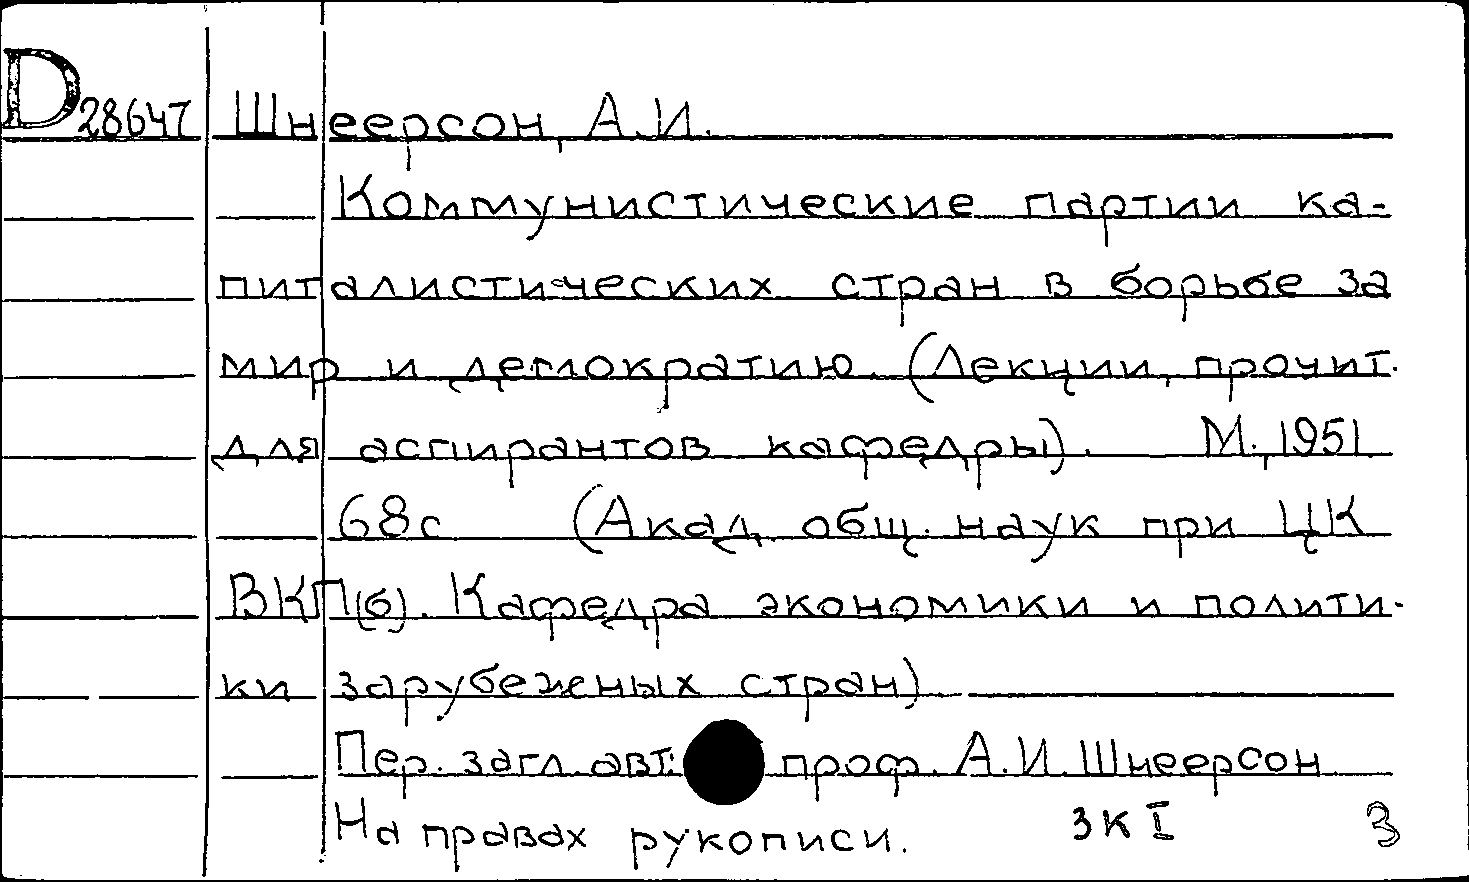 D 28647 Шнеерсон, А.И.
Коммунистические партии ка-
питалистических стран в борьбе за
мир и демократию. (Лекции, прочит.
для аспирантов кафедры). М., 1951
68с (Акад. общ. наук при ЦК
ВКП(б). Кафедра экономики и полити-
ки зарубежных стран)
Пер. загл. авт: проф. А.И. Шнеерсон
На правах рукописи. 3К I 3